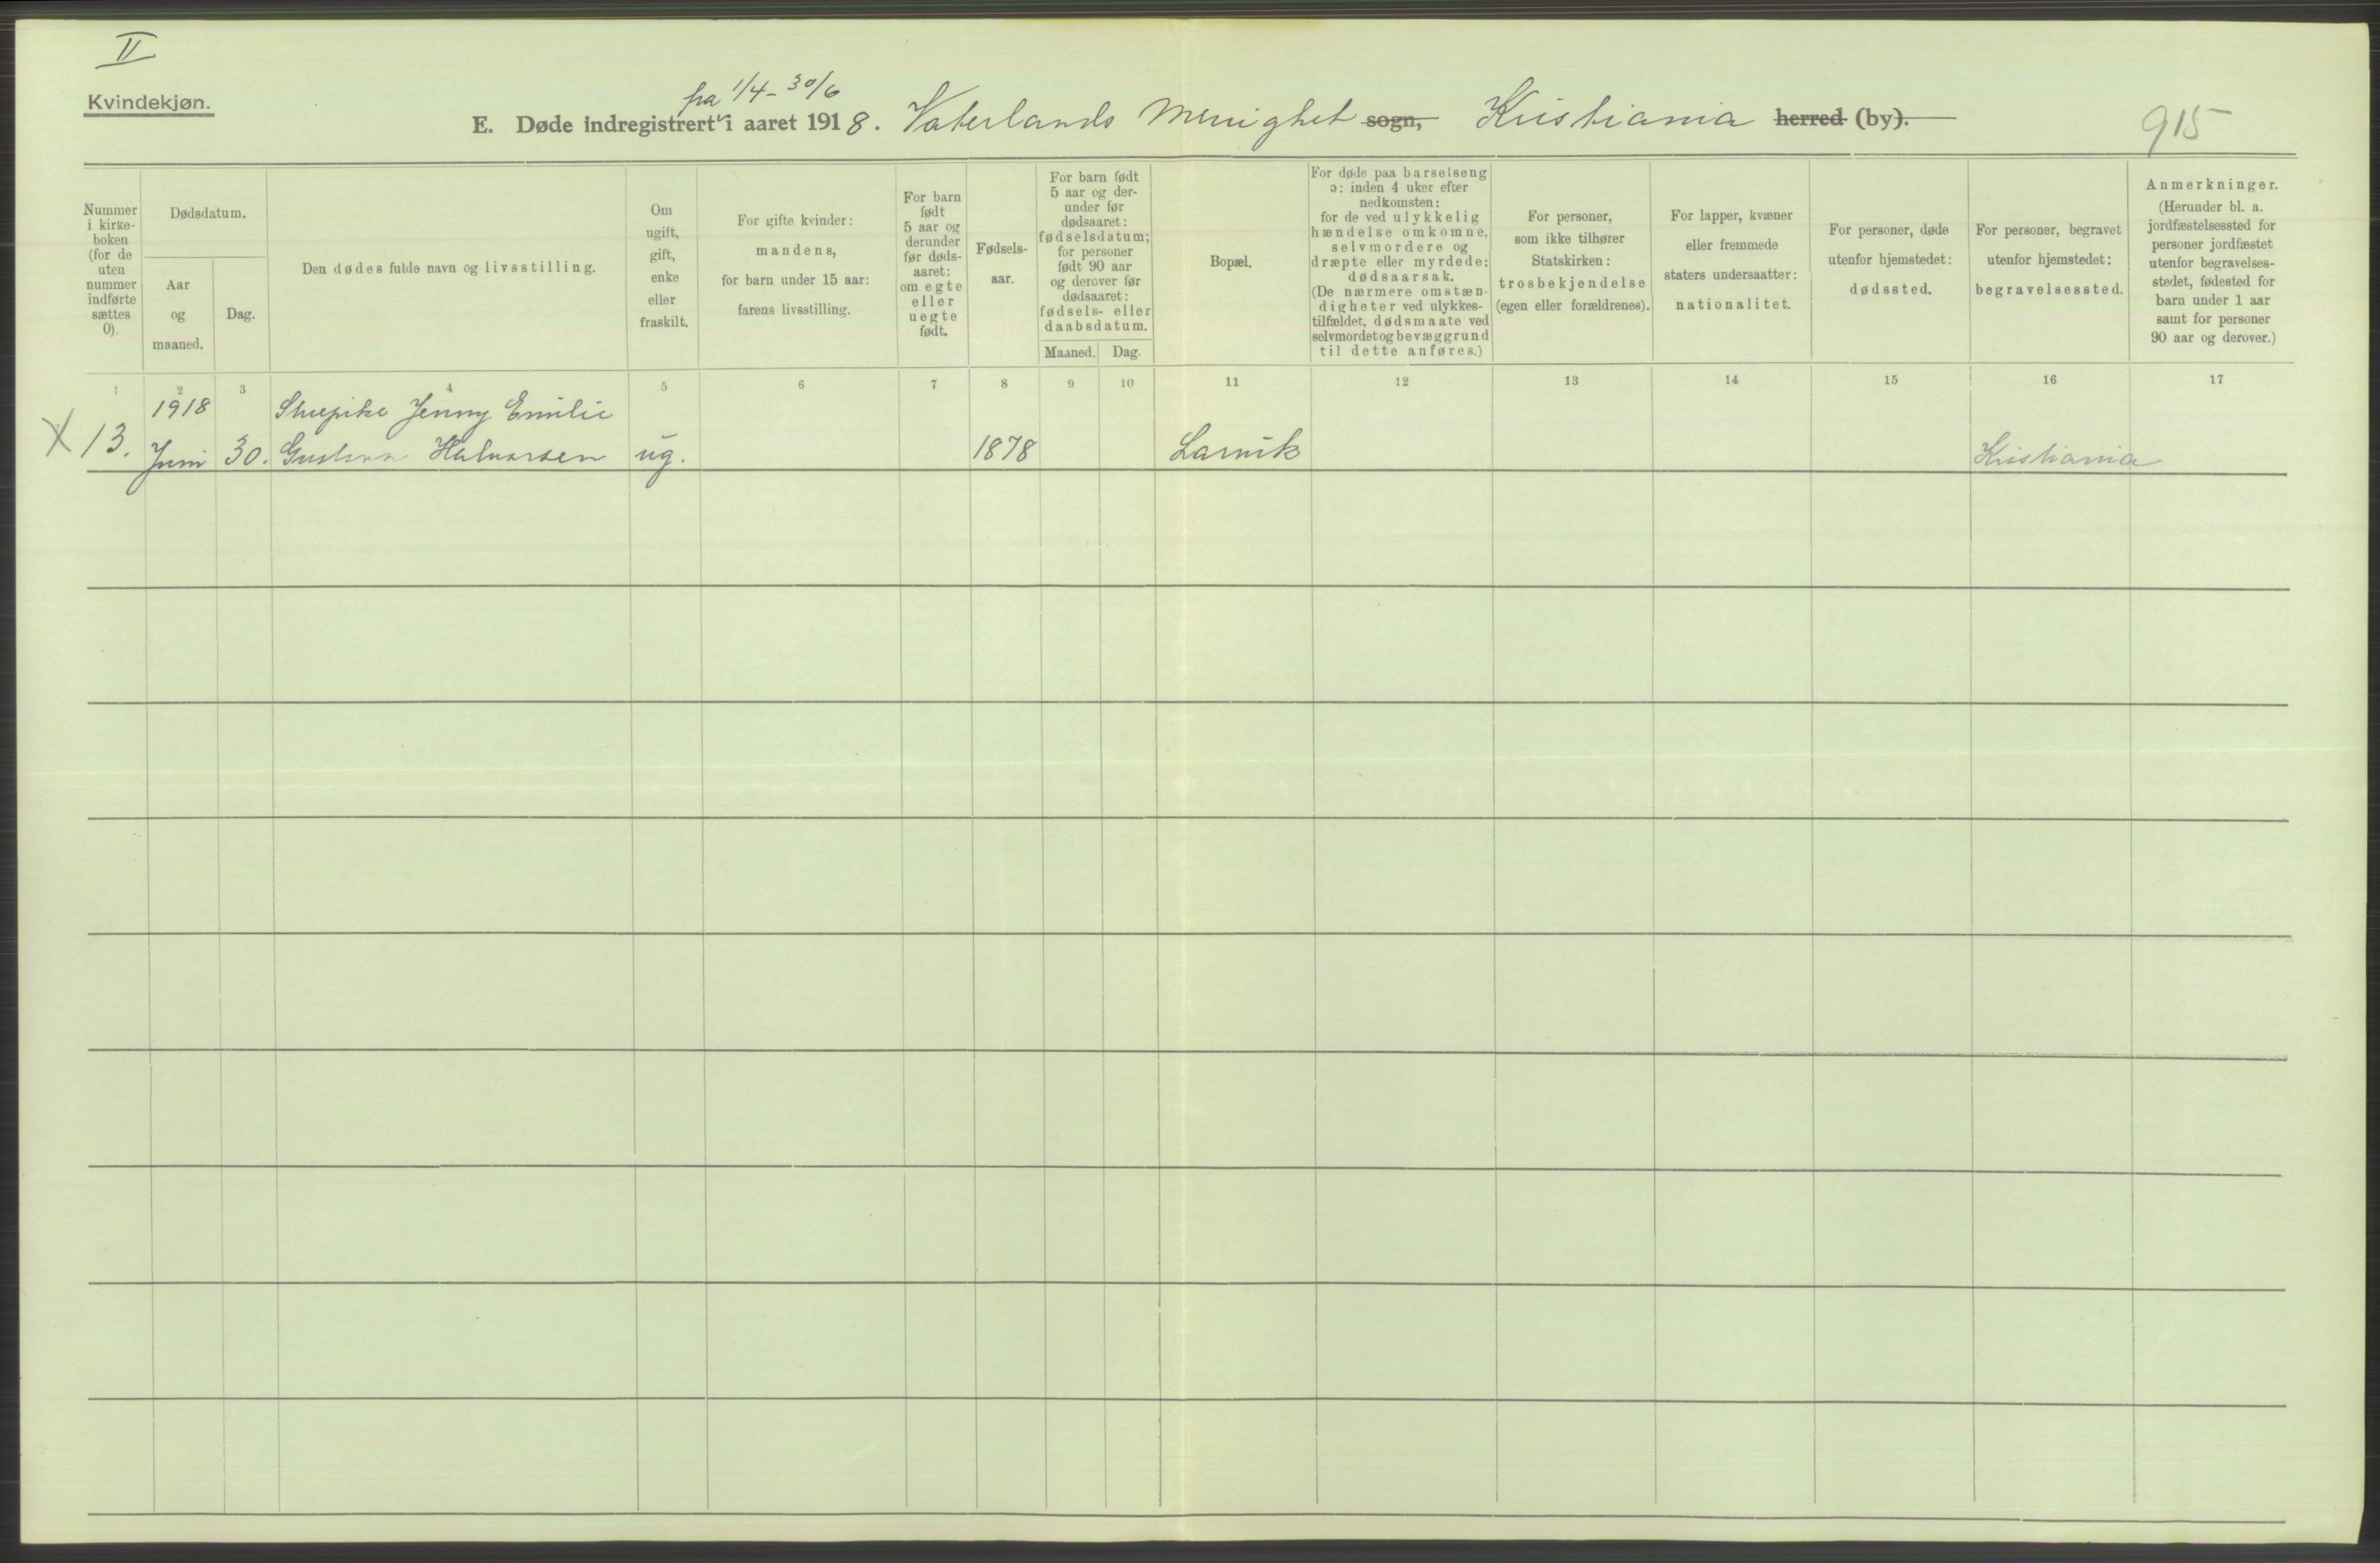 II
Kvindekjøn.
fra 1/4 - 30/6
E. Døde indregistrert i aaret 1918. Vaterlands Menighet sogn, Kristiania herred (by).
915
Nummer i kirke-boken (for de uten nummer indførte sættes 0).
Dødsdatum.
Aar og maaned.
Dag.
Den dødes fulde navn og livsstilling.
Om ugift, gift, enke eller fraskilt.
For gifte kvinder: mandens, for barn under 15 aar: farens livsstilling.
For barn født 5 aar og derunder før døds-aaret: om egte eller uegte født.
Fødsels-aar.
For barn født 5 aar og der-under før dødsaaret: fødselsdatum; for personer født 90 aar og derover før dødsaaret: fødsels- eller daabsdatum.
Maaned.
Dag.
Bopæl.
For døde paa barselseng ɔ: inden 4 uker efter nedkomsten: for de ved ulykkelig hændelse omkomne, selvmordere og dræpte eller myrdede: dødsaarsak. (De nærmere omstæn-digheter ved ulykkes-tilfældet, dødsmaate ved selvmordet og bevæggrund til dette anføres.)
For personer, som ikke tilhører Statskirken: trosbekjendelse (egen eller forældrenes).
For lapper, kvæner eller fremmede staters undersaatter: nationalitet.
For personer, døde utenfor hjemstedet: dødssted.
For personer, begravet utenfor hjemstedet: begravelsessted.
Anmerkninger. (Herunder bl. a. jordfæstelsessted for personer jordfæstet utenfor begravelses-stedet, fødested for barn under 1 aar samt for personer 90 aar og derover.)
1 2 3 4 5 6 7 8 9 10 11 12 13 14 15 16 17
1918 Jenny Emilie
X 13. Juni 30. Gustava Halvorsen ug. 1878 Larvik Kristiania